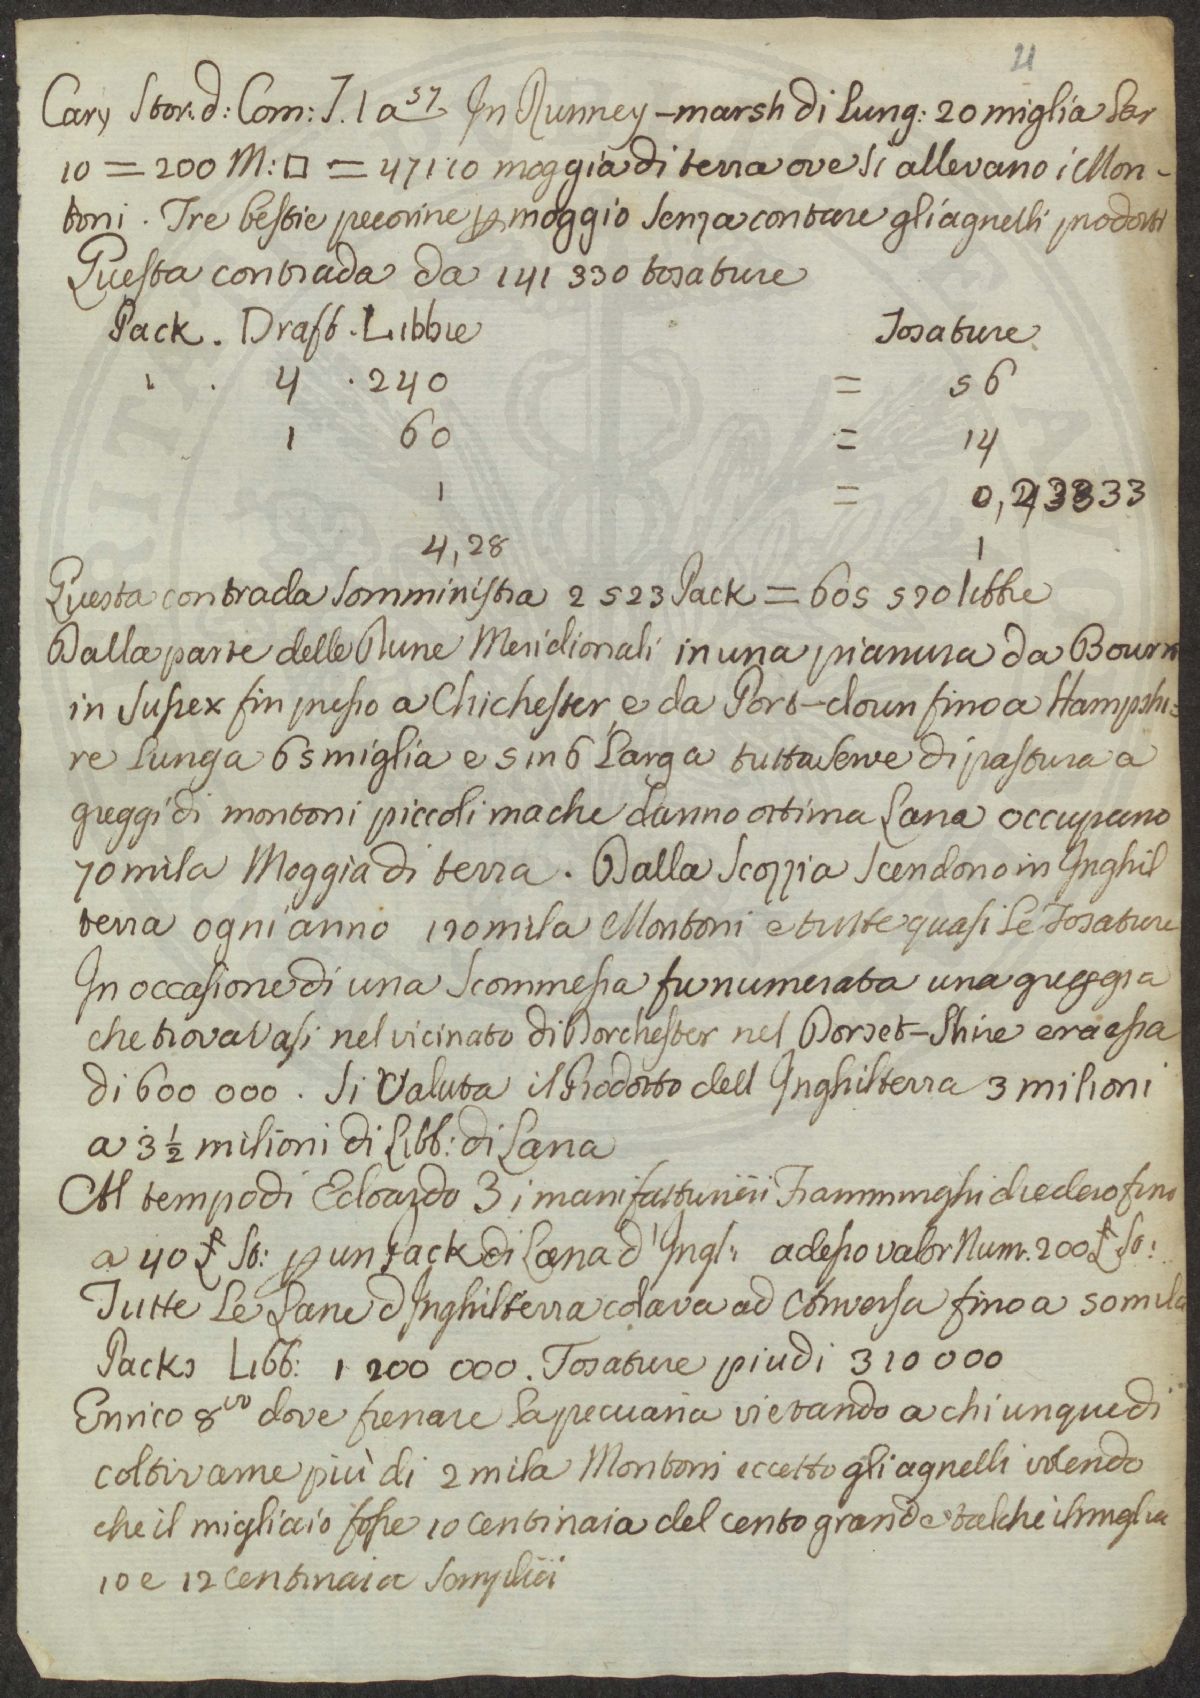 21
Cary Stor. d: Com: T. 1 a 57. In Rumney-marsh di Lung: 20 miglia Lar
10 = 200 M: □ = 47110 moggia di terra ove si allevano i Mon-
toni. Tre bestie pecorine p moggio senza contare gli agnelli prodotti
Questa contrada da 141 330 tosature
Pack. Draft. Libbre Tosature
1 . 4 . 240 = 56
1 60 = 14
1 = 0,23333
4,28 1
Questa contrada somministra 2523 Pack = 605 520 libbre
Dalla parte delle Dune Meridionali in una pianura da Bourn
in Sussex fin presso a Chichester e da Port-down fino a Hampshi=
re lunga 65 miglia e 5 in 6 Larga tutta serve di pastura a
greggi di montoni piccoli ma che danno ottima Lana occupano
70 mila Moggia di terra. Dalla Scozzia scendono in Inghil
terra ogni anno 120 mila Montoni e tutte quasi le Tosature
In occasione di una scommessa fu numerata una greggia
che trovavasi nel vicinato di Dorchester nel Dorset-Shire era essa
di 600 000. Si valuta il Prodotto dell Inghilterra 3 milioni
a 3 ½ milioni di Libb: di Lana
Al tempo di Edoardo 3 i manifatturieri Fiamminghi diedero fino
a 40 £ St: p un Pack di Lana d'Ingl: adesso valor Num. 200 £ St:
Tutte le Lane d Inghilterra colava ad Conversa fino a 50 mila
Packs Libb: 1 200 000. Tosature piu di 310 000
Enrico 8vo dove frenare la pecuaria vietando a chiunque di
coltivarne più di 2 mila Montoni eccetto gli agnelli volendo
che il migliaio fosse 10 centinaia del cento grande talche il miglia
10 e 12 centinaia semplici